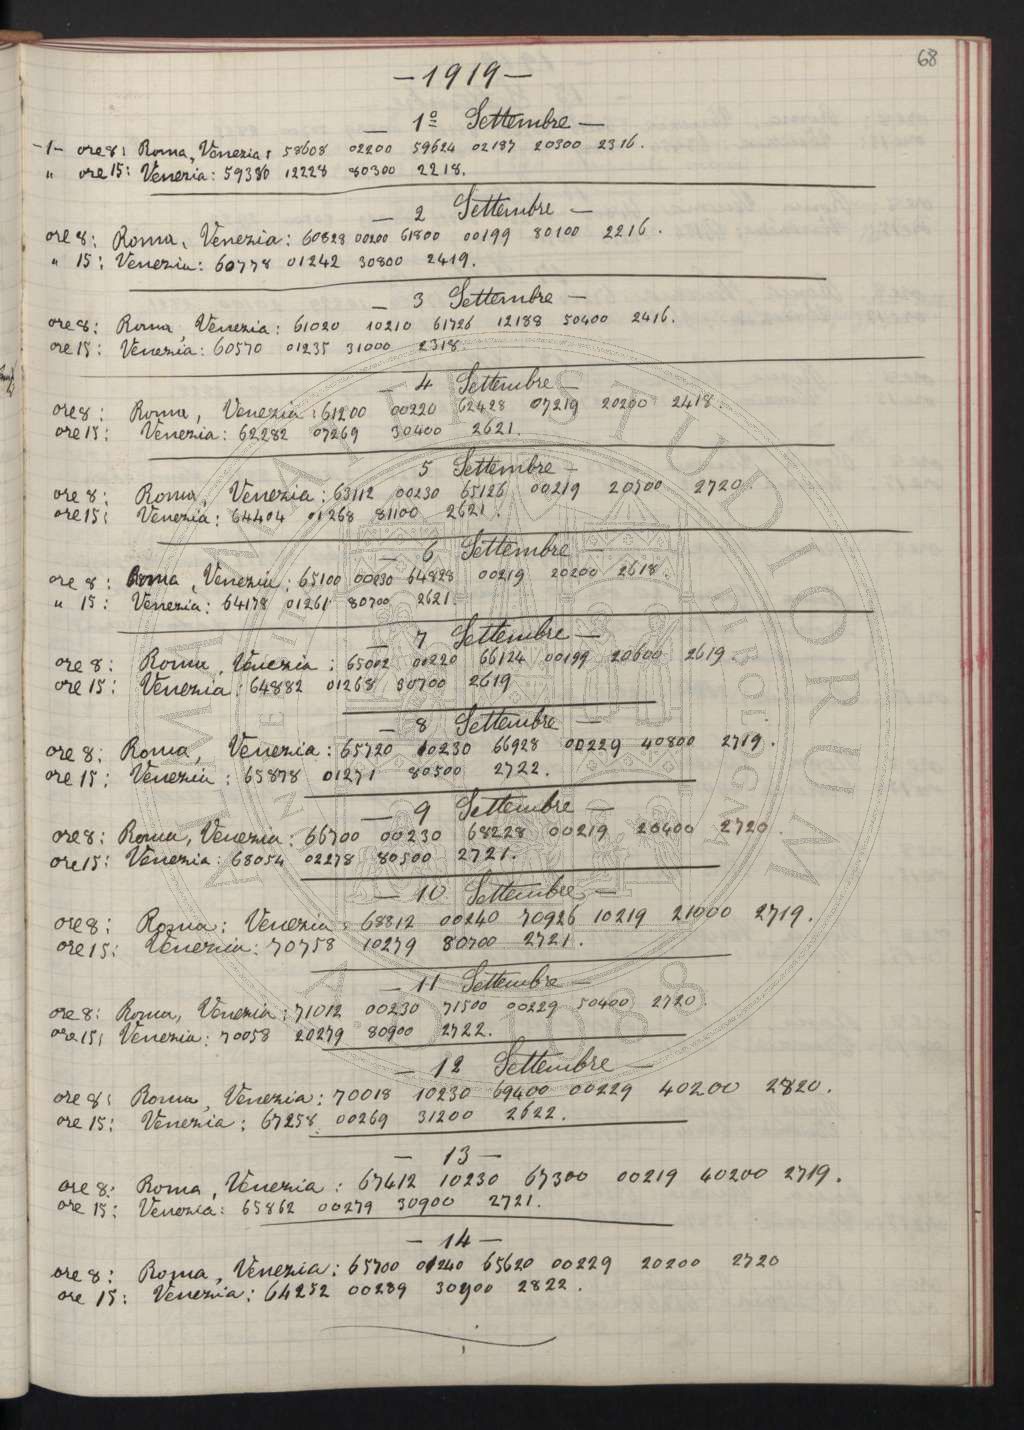 68
— 1919 —
— 1º Settembre —
-1- ore 8: Roma, Venezia: 58608 02200 59624 02187 20300 2316.
" ore 15: Venezia: 59380 12228 80300 2218.
— 2 Settembre —
ore 8: Roma, Venezia: 60828 00200 61800 00199 80100 2216.
" 15: Venezia: 60778 01242 30800 2419.
— 3 Settembre —
ore 8: Roma, Venezia: 61020 10210 61726 12188 50400 2416.
ore 15: Venezia: 60570 01235 31000 2318.
— 4 Settembre —
ore 8: Roma, Venezia: 61200 00220 62428 07219 20200 2418.
ore 15: Venezia: 62282 07269 30400 2621.
5 Settembre —
ore 8: Roma, Venezia: 63112 00230 65126 00219 20700 2720.
ore 15: Venezia: 64404 01268 81100 2621.
— 6 Settembre —
ore 8: Roma, Venezia: 65100 00230 64828 00219 20200 2618.
" 15: Venezia: 64178 01261 80700 2621.
— 7 Settembre —
ore 8: Roma, Venezia: 65002 00220 66124 00199 20600 2619.
ore 15: Venezia: 64882 01268 30700 2619
— 8 Settembre —
ore 8: Roma, Venezia: 65720 10230 66928 00229 40800 2719.
ore 15: Venezia: 65878 01271 80500 2722.
— 9 Settembre —
ore 8: Roma, Venezia: 66700 00230 68228 00219 20400 2720.
ore 15: Venezia: 68054 02278 80500 2721.
— 10 Settembre —
ore 8: Roma: Venezia: 68812 00240 70926 10219 21000 2719.
ore 15: Venezia: 70758 10279 80700 2721.
— 11 Settembre —
ore 8: Roma, Venezia: 71012 00230 71500 00229 50400 2720
ore 15: Venezia: 70058 20279 80900 2722.
— 12 Settembre —
ore 8: Roma, Venezia: 70018 10230 69400 00229 40200 2820.
ore 15: Venezia: 67258 00269 31200 2622.
— 13 —
ore 8: Roma, Venezia: 67412 10230 67300 00219 40200 2719.
ore 15: Venezia: 65862 00279 30900 2721.
— 14 —
ore 8: Roma, Venezia: 65700 01240 65620 00229 20200 2720
ore 15: Venezia: 64252 00289 30900 2822.
ALMA MATER STUDIORUM
A.D. 1088